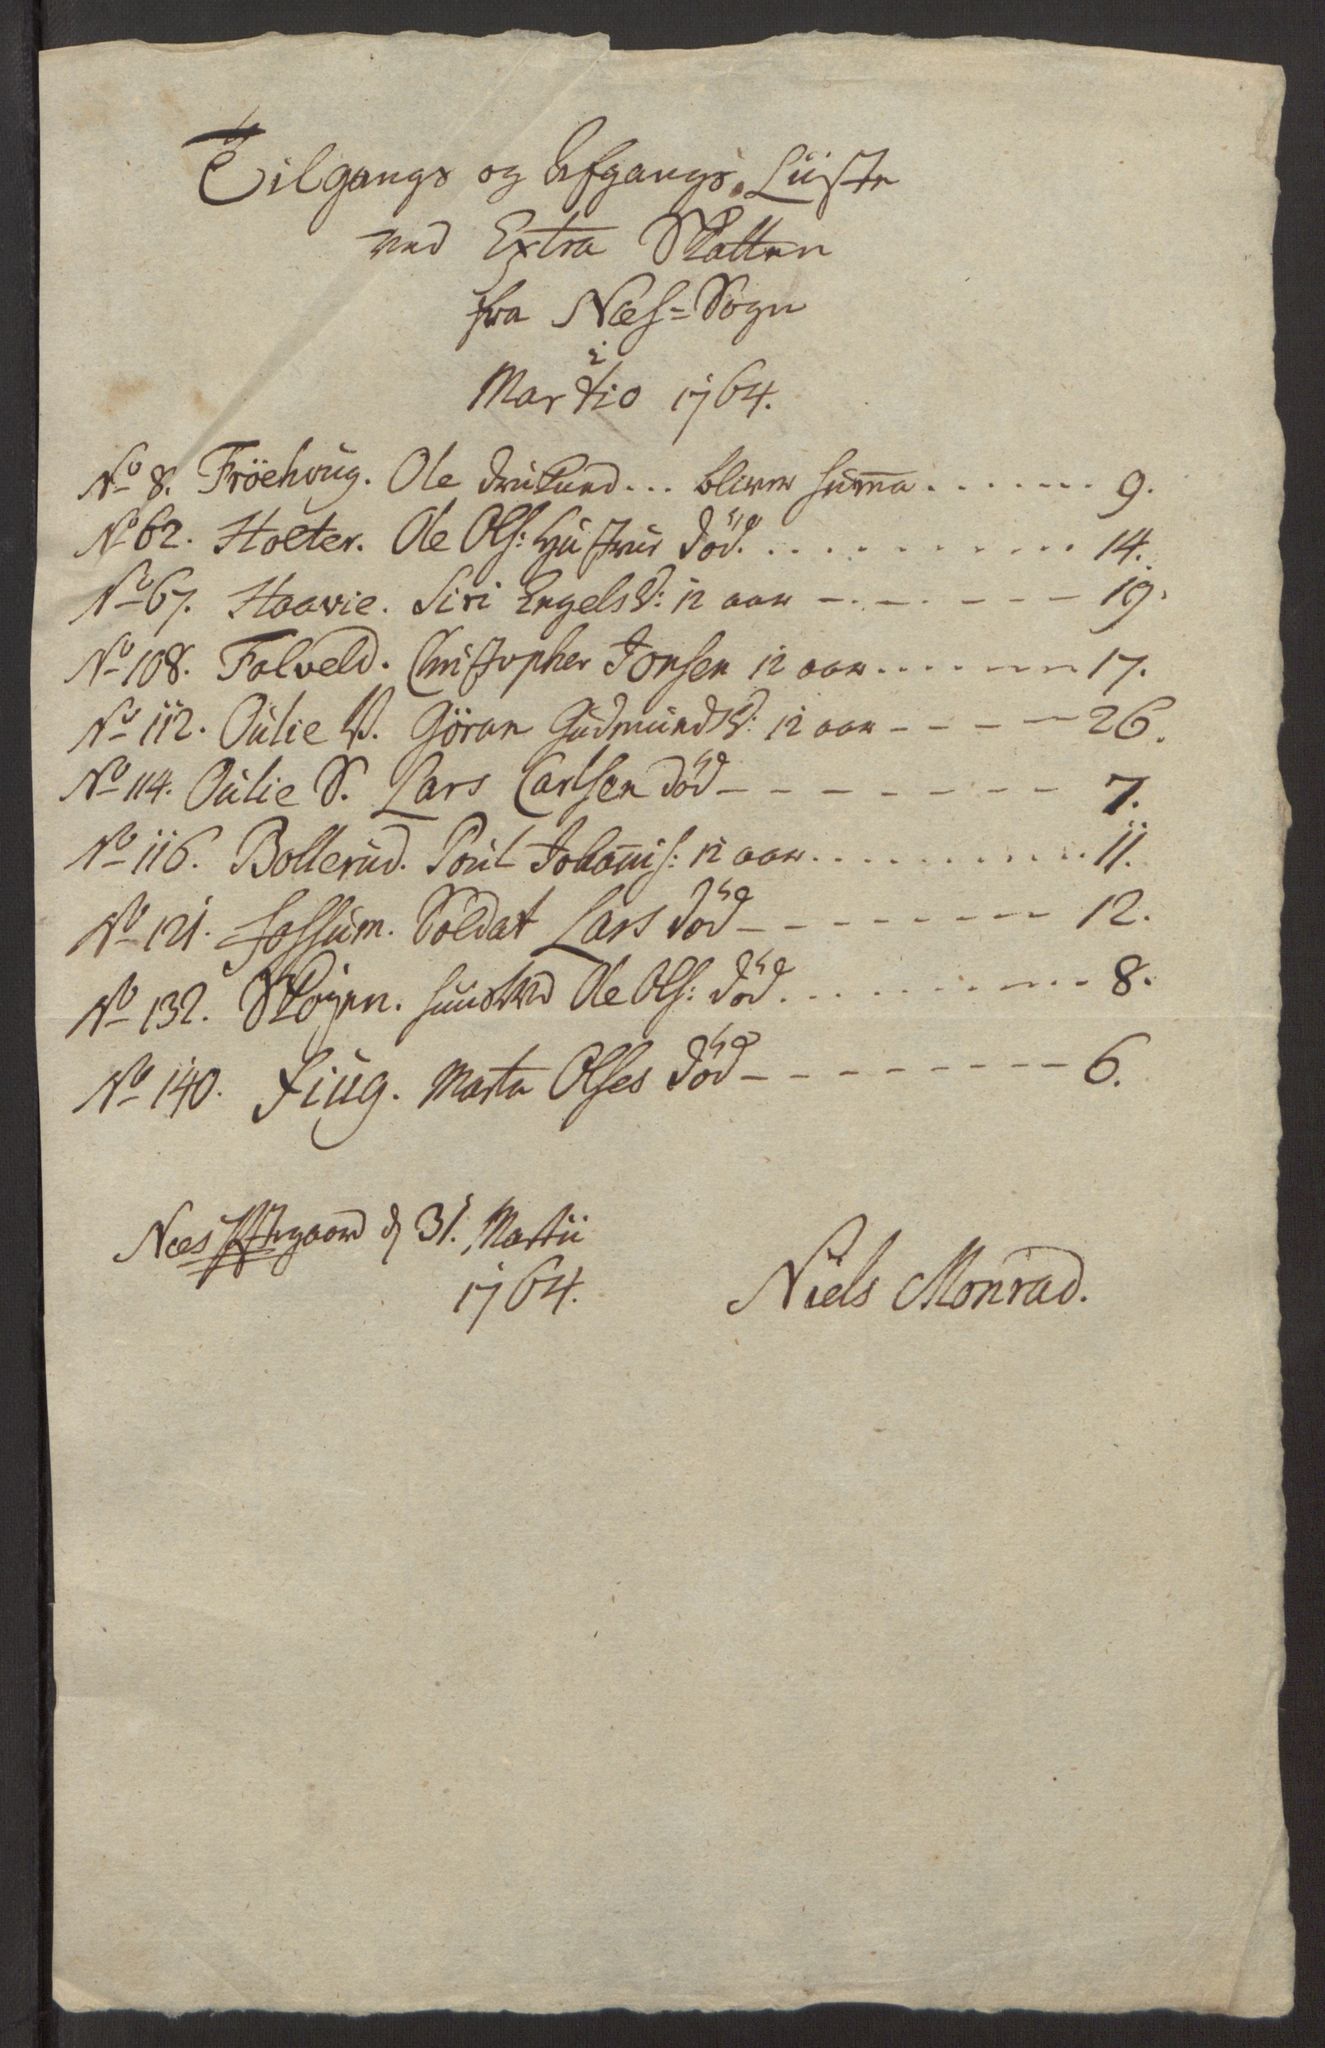 Tilgangs og Afgangs Liiste
ved Extra Skatten
fra Næs=Sogn
i
Martio 1764.
No 8. Fröehoug. Ole bliver suma 9.
No 62. Holter. Ole Ols: Hustrue död. 14.
No 67. Haavie. Siri EngelsD: 12 aar 19.
No 108. Folveld. Christopher Jonsen 12 aar 17.
No 112. Oulie V. Göran GudmundsD: 12 aar 26.
No 114. Oulie S. Lars Carlsen död 7.
No 116. Bollerud. Poul Johanis: 12 aar 11.
No 121. Fossum. Soldat Lars död 12.
No 132. Skoyen. huusmd Ole Ols: död. 8.
No 140. Fiug. Marta Olses död 6.
Næs Præstegaard d 31. Martii
1764. Niels Monrad.